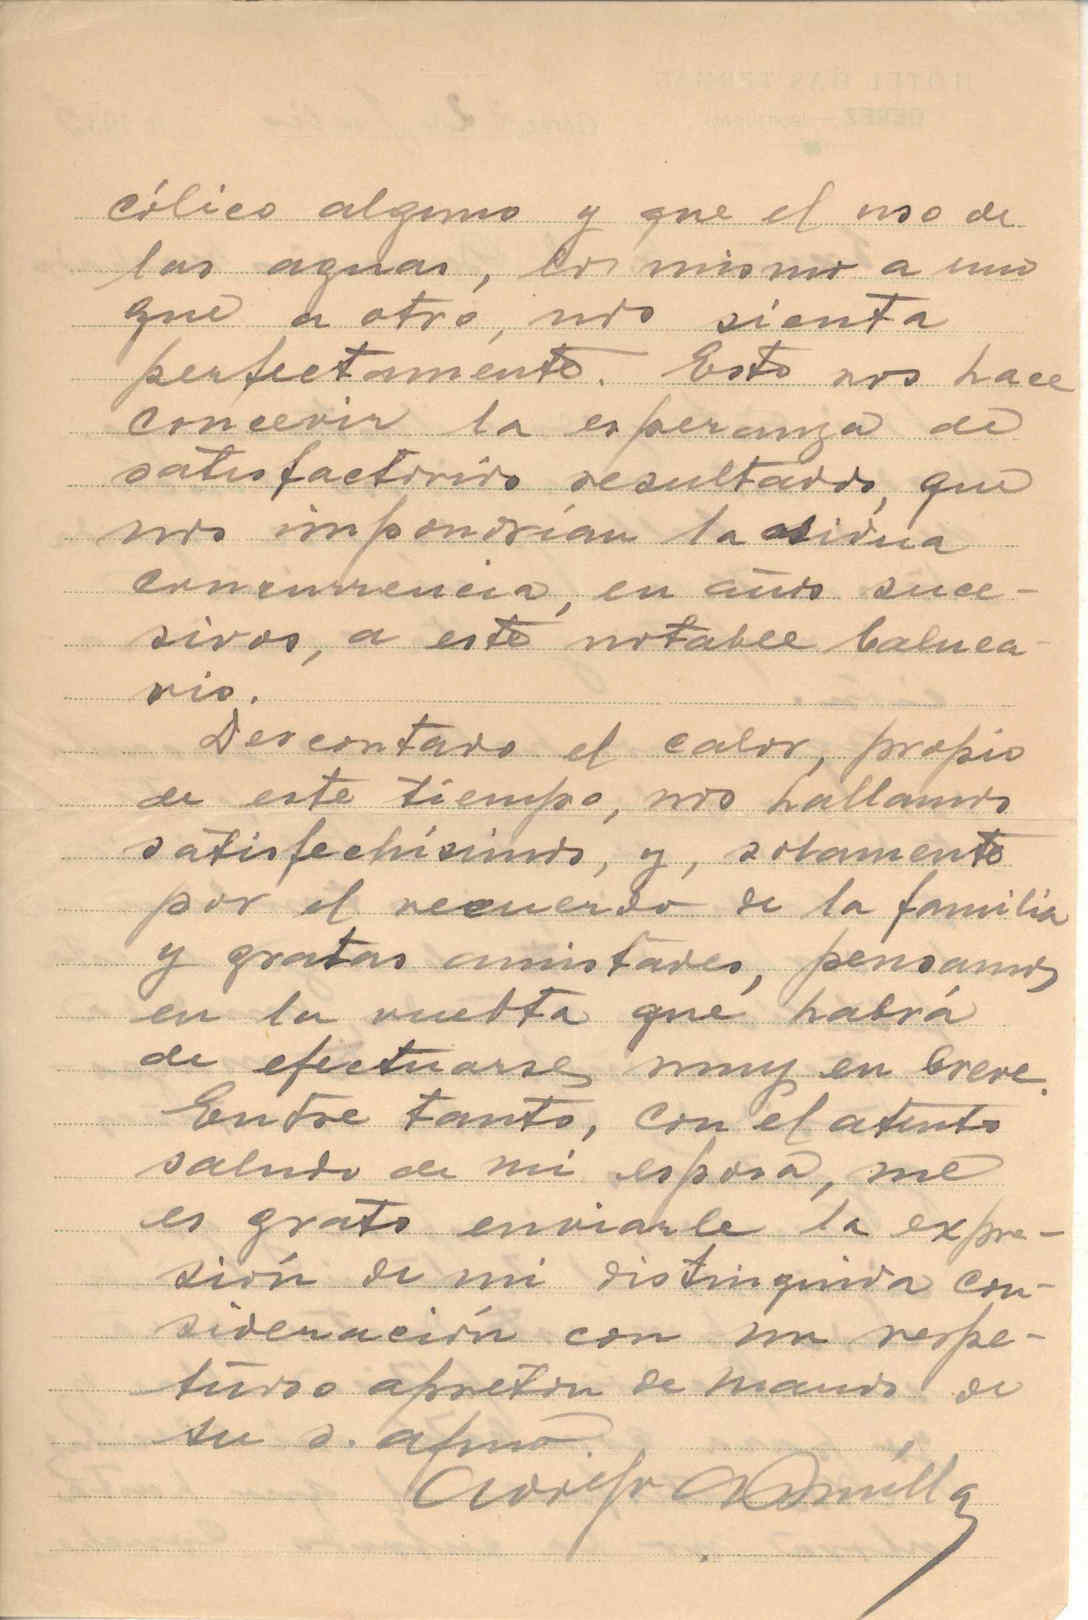 cólico alguno y que el uso de
las aguas, lo mismo a uno
que a otro, nos sienta
perfectamente. Esto nos hace
concevir la esperanza de
satisfactorios resultados, que
nos impondrían la asidua
concurrencia, en años suce-
sivos, a este notable balnea-
rio.
Descontado el calor, propio
de este tiempo, nos hallamos
satisfechísimos, y, solamente
por el recuerdo de la familia
y gratas amistades, pensamos
en la vuelta que habrá
de efectuarse muy en breve.
Entre tanto, con el atento
saludo de mi esposa, me
es grato enviarle la expre-
sión de mi distinguida con-
sideración con un respe-
tuoso apretón de manos de
su s. afmo.
Adolfo